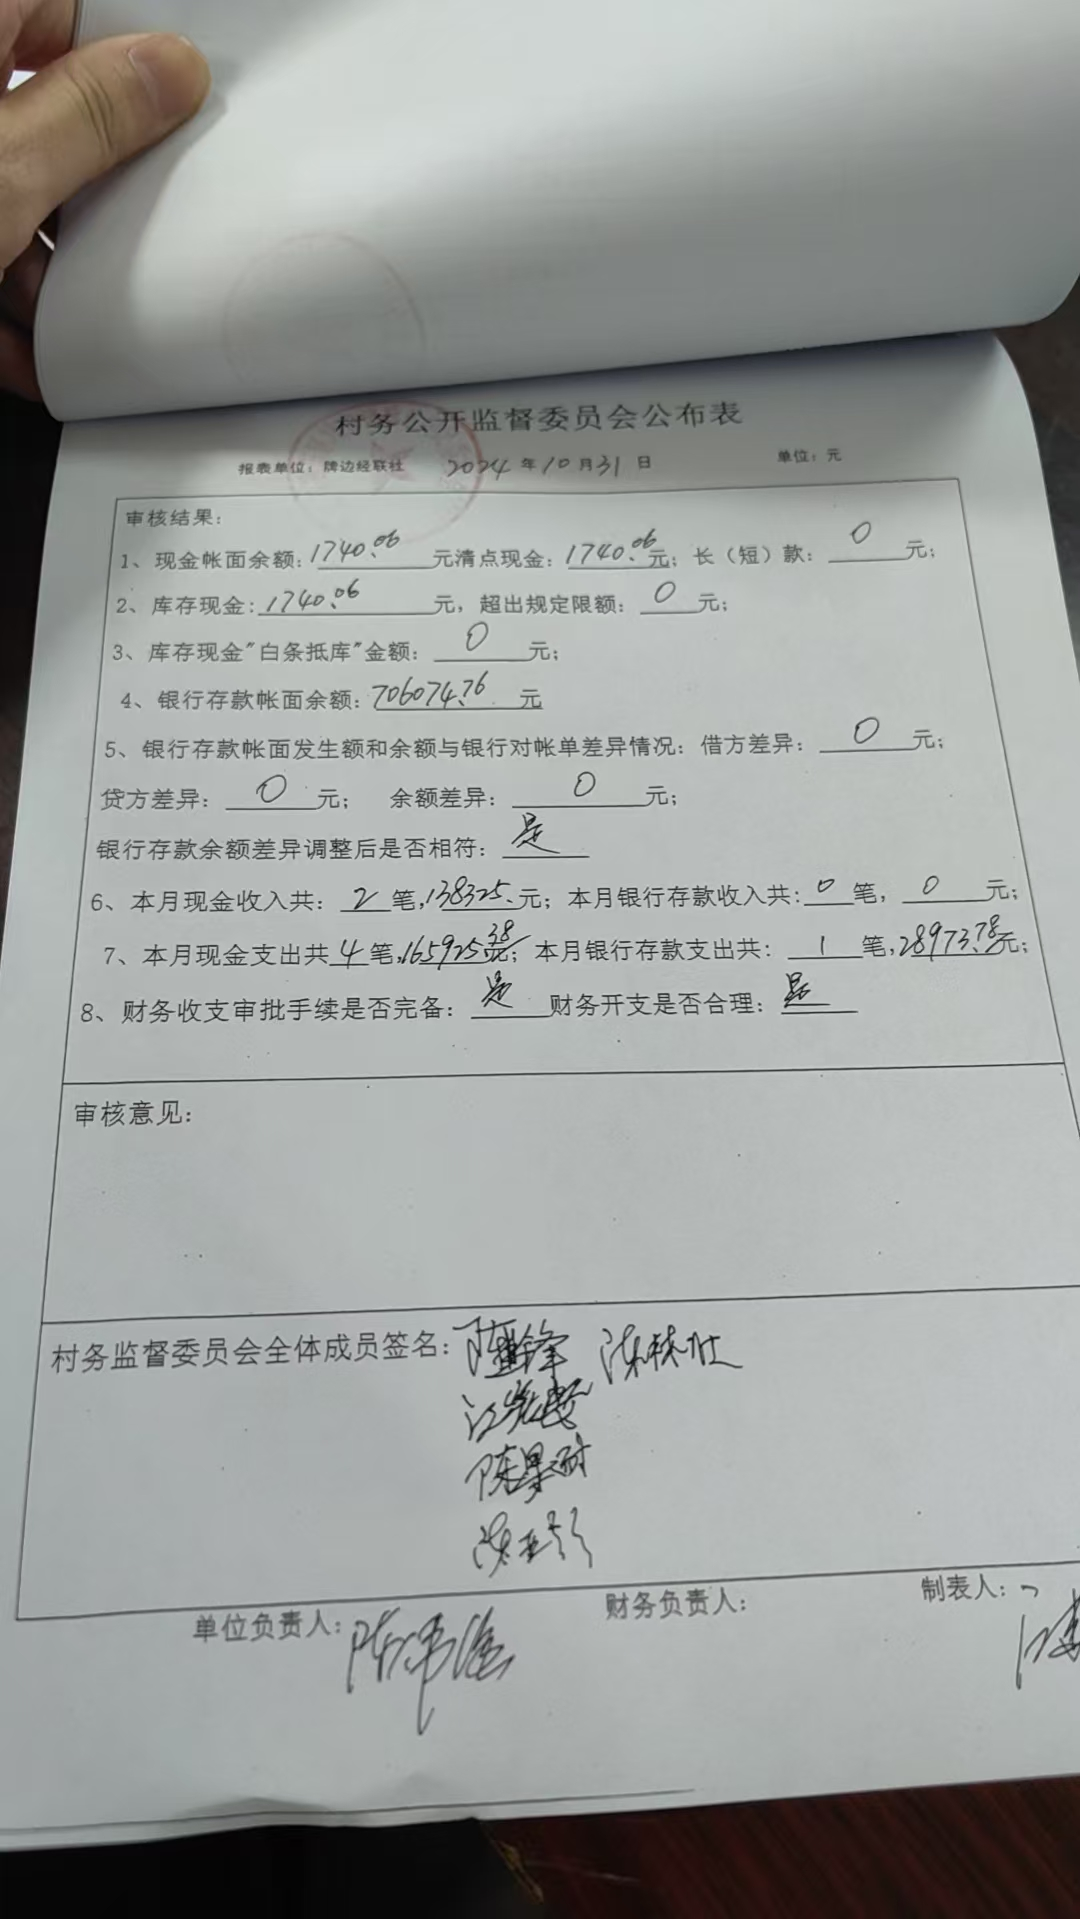 村务公开监督委员会公布表
报表单位：牌边经联社 2024 年 10 月 31 日 单位：元
审核结果：
1、现金帐面余额：1740.06 元清点现金：1740.06 元；长（短）款：0 元；
2、库存现金：1740.06 元，超出规定限额：0 元；
3、库存现金"白条抵库"金额：0 元；
4、银行存款帐面余额：706074.76 元
5、银行存款帐面发生额和余额与银行对帐单差异情况：借方差异：0 元；
贷方差异：0 元； 余额差异：0 元；
银行存款余额差异调整后是否相符：是
6、本月现金收入共：2 笔，138325. 元；本月银行存款收入共：0 笔，0 元；
7、本月现金支出共 4 笔，165925.38 元；本月银行存款支出共：1 笔，28973.78 元；
8、财务收支审批手续是否完备：是 财务开支是否合理：是
审核意见：
村务监督委员会全体成员签名：
单位负责人： 财务负责人： 制表人：